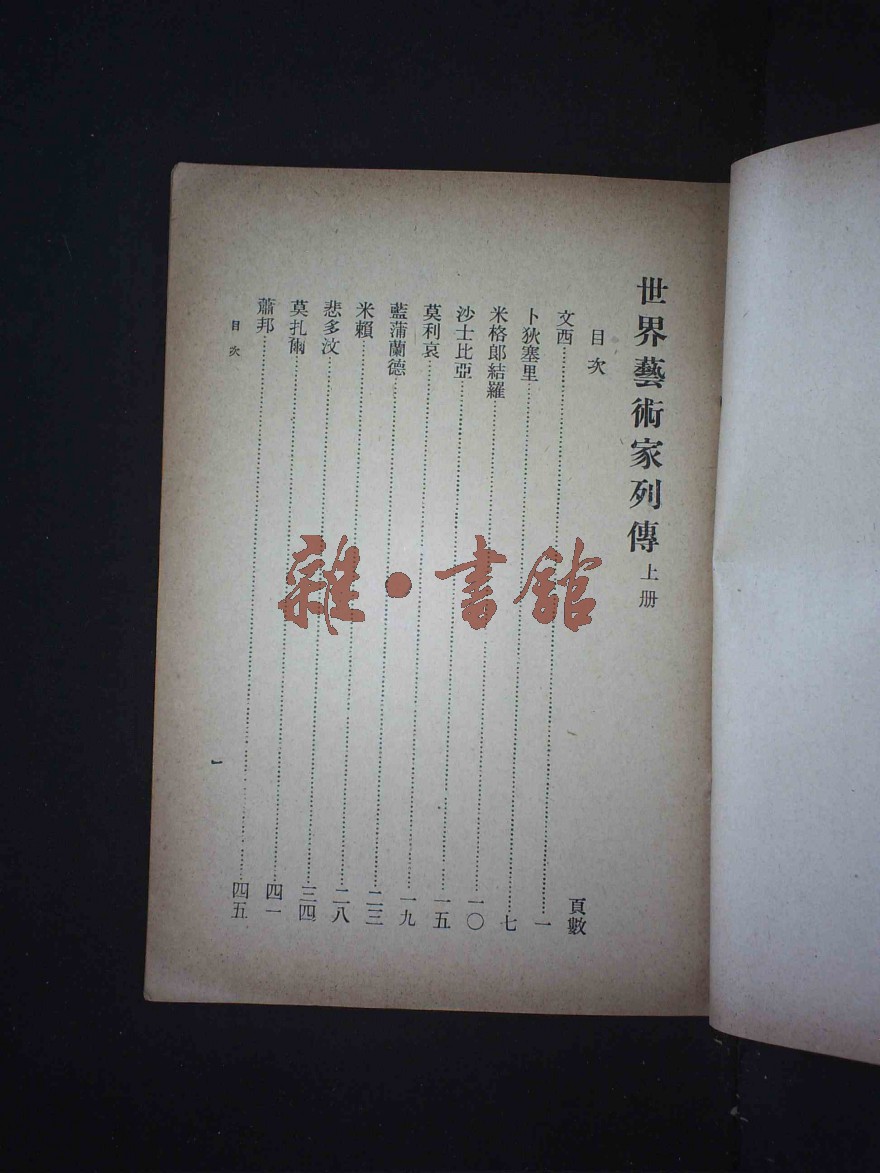 世界藝術家列傳 上册
目次 頁數
文西……一
卜狄塞里……七
米格郎結羅……一〇
沙士比亞……一五
莫利哀……一九
藍蒲蘭德……二三
米賴……二八
悲多汶……三四
莫扎爾……四一
蕭邦……四五
目次 一
雜·書館